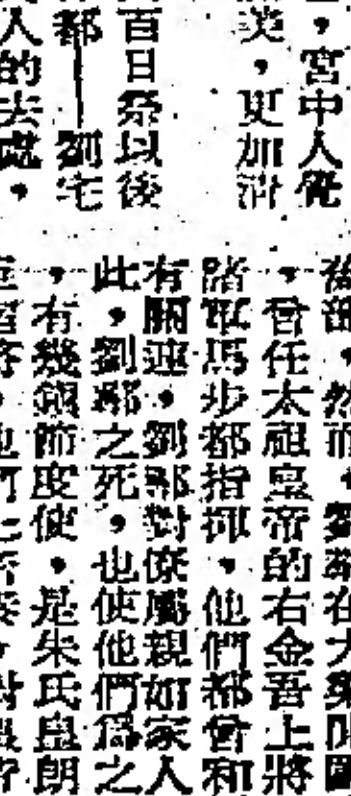 ，宮中人覺
美，更加滑
百日祭以後
都──劉宅
人的去處，
舊部，然而，劉鄩在大梁開國
，曾任太祖皇帝的右金吾上將
諸軍馬步都指揮，他們都曾和
有關連。劉鄩對僚屬親如家人
此，劉鄩之死，也使他們為之
，有幾鎮節度使，是朱氏皇朝